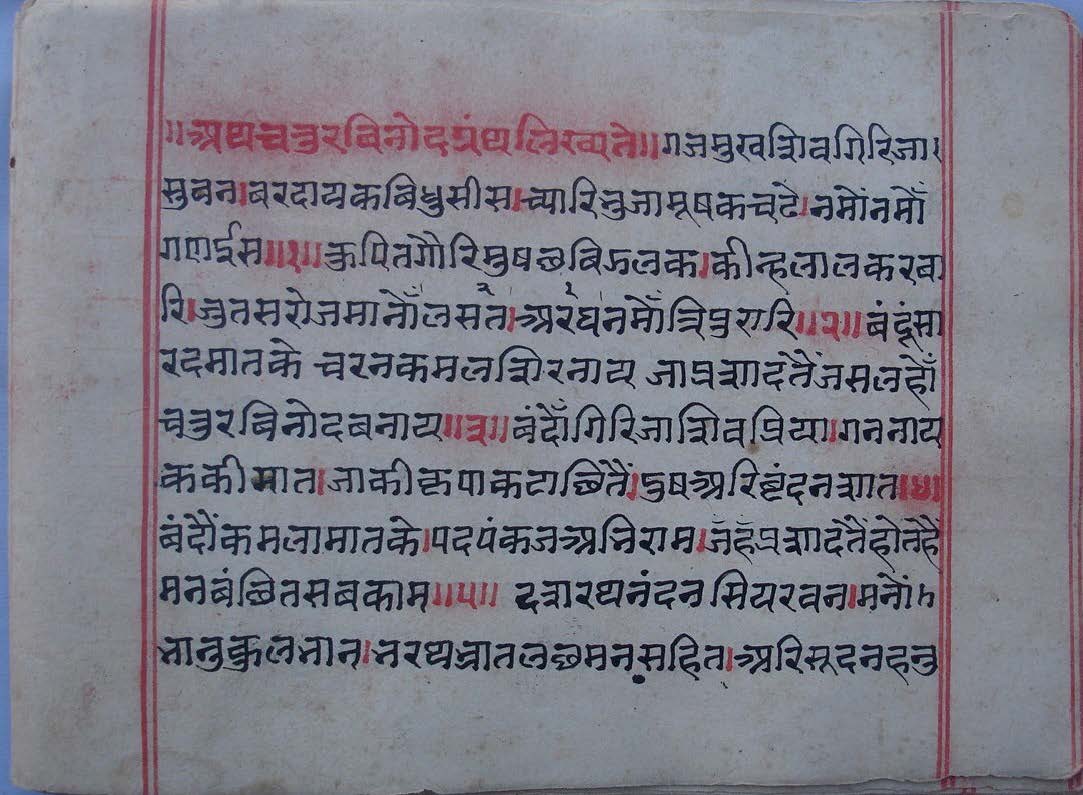 ॥अथ चतुरबिनोद ग्रंथ लिख्यते॥ गजमुख शिव गिरिजा
सुवन।बरदायक बिधु सीस।च्यारि भुजा मूषक चढे।नमों नमोँ
गणईस॥१॥कुपित गौरि मुष छबि ऊलक।कीन्ह लाल करवा
रि।जुत सरोज मानोँ लसत।अरघ नमोँ त्रिपुरारि॥२॥बंदूं सा
रद मात के चरन कमल शिर नाय जा प्रशादतें जमल हौं
चतुर बिनोद बनाय॥३॥बंदौँ गिरिजा शिव प्रिया।गननाय
क की मात।जा की कृपा कटाछितें।पुष अरिष्टंदनशात॥४॥
बंदौं कमला मात के।पद पंकज अभिराम।जँह प्रशादतें होत हैं
मन बंछित सब काम॥५॥ दशरथ नंदन सिय रवन।मनों
भानुकुल भान।भरथ भ्रात लछमन सहित।अरिसूदन हनु